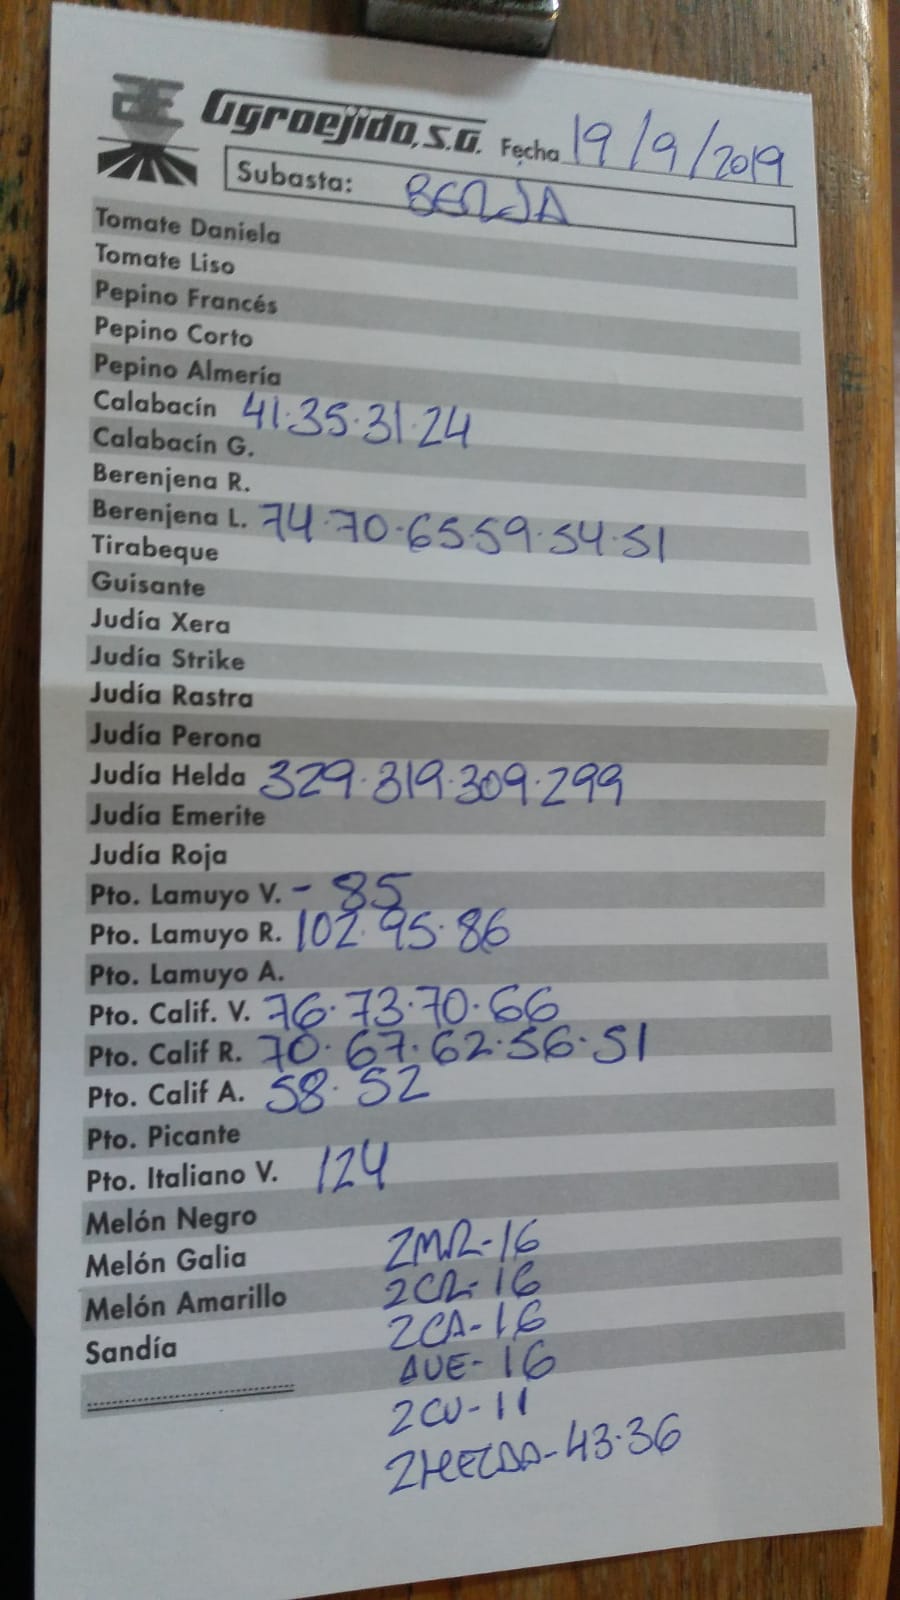 AE Agroejido, S.A. Fecha 19/9/2019
Subasta: BERJA
Tomate Daniela
Tomate Liso
Pepino Francés
Pepino Corto
Pepino Almería
Calabacín 41·35·31·24
Calabacín G.
Berenjena R.
Berenjena L. 74·70·65·59·54·51
Tirabeque
Guisante
Judía Xera
Judía Strike
Judía Rastra
Judía Perona
Judía Helda 329·319·309·299
Judía Emerite
Judía Roja
Pto. Lamuyo V. - 85
Pto. Lamuyo R. 102·95·86
Pto. Lamuyo A.
Pto. Calif. V. 76·73·70·66
Pto. Calif R. 70·67·62·56·51
Pto. Calif A. 58·52
Pto. Picante
Pto. Italiano V. 124
Melón Negro
Melón Galia 2MR-16
Melón Amarillo 2CR-16
Sandía 2CA-16
AVE-16
2CV-11
2HELDA-43·36